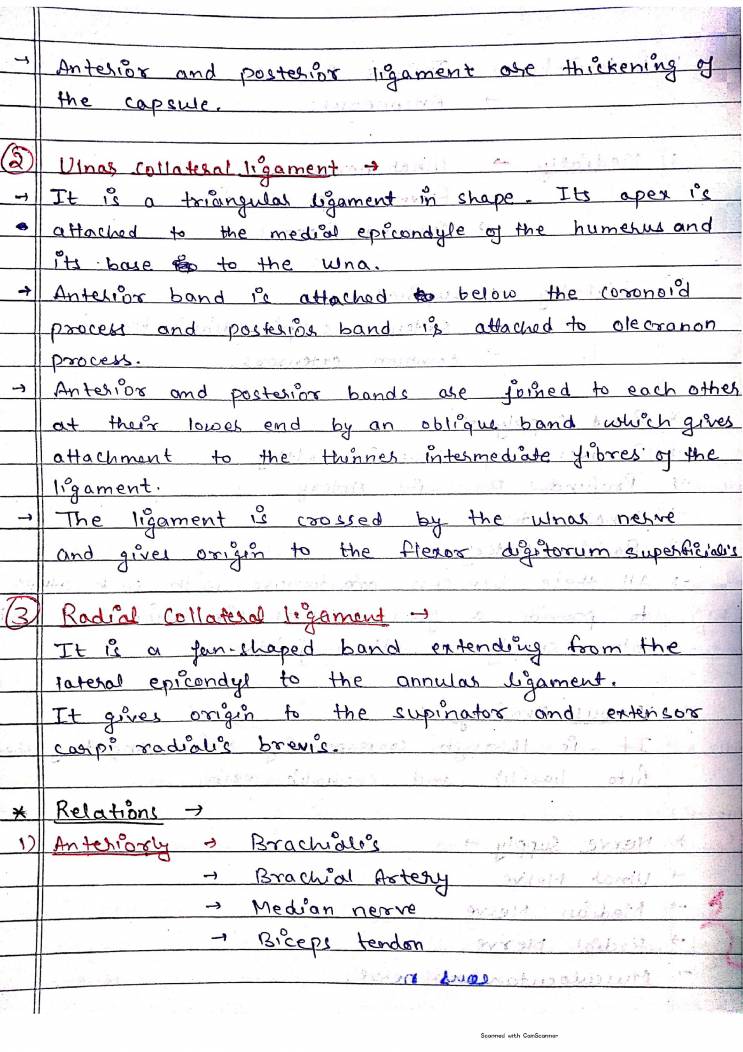 → Anterior and posterior ligament are thickening of
the capsule.
② Ulnar collateral ligament →
→ It is a triangular ligament in shape. Its apex is
attached to the medial epicondyle of the humerus and
its base to the ulna.
→ Anterior band is attached below the coronoid
process and posterior band is attached to olecranon
process.
→ Anterior and posterior bands are joined to each other
at their lower end by an oblique band which gives
attachment to the thinner intermediate fibres of the
ligament.
→ The ligament is crossed by the ulnar nerve
and gives origin to the flexor digitorum superficialis
③ Radial collateral ligament →
It is a fan-shaped band extending from the
lateral epicondyl to the annular ligament.
It gives origin to the supinator and extensor
carpi radialis brevis.
* Relations →
1) Anteriorly → Brachialis
→ Brachial Artery
→ Median nerve
→ Biceps tendon
Scanned with CamScanner